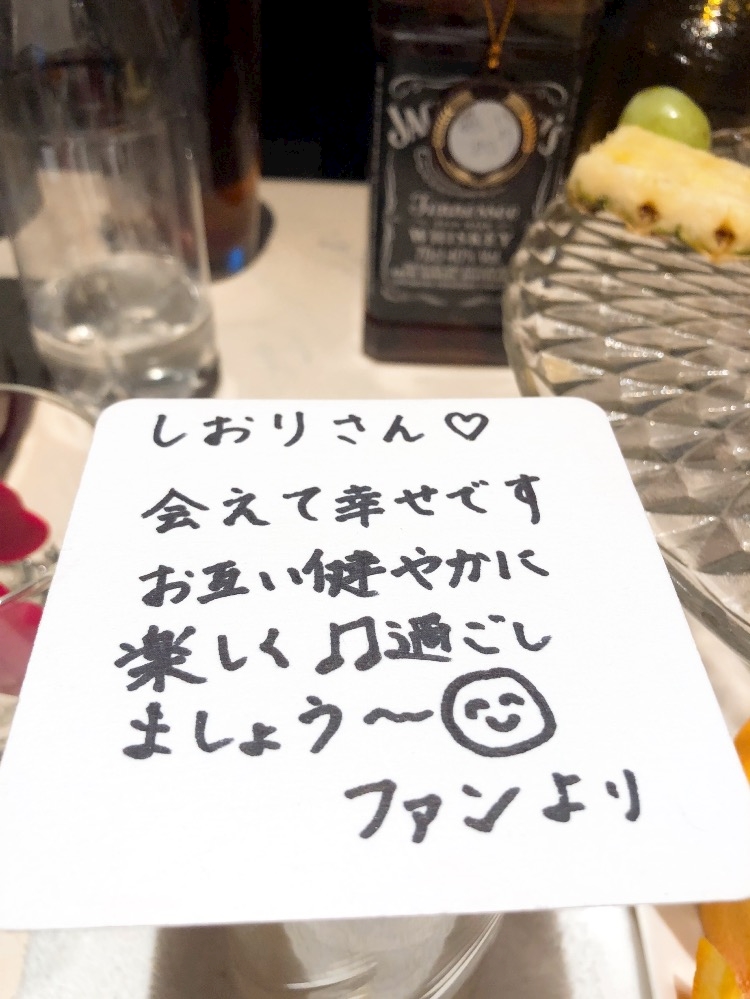 しおりさん♡
会えて幸せです
お互い健やかに
楽しく♫過ごし
ましょう〜😊
ファンより
Tennessee
WHISKEY